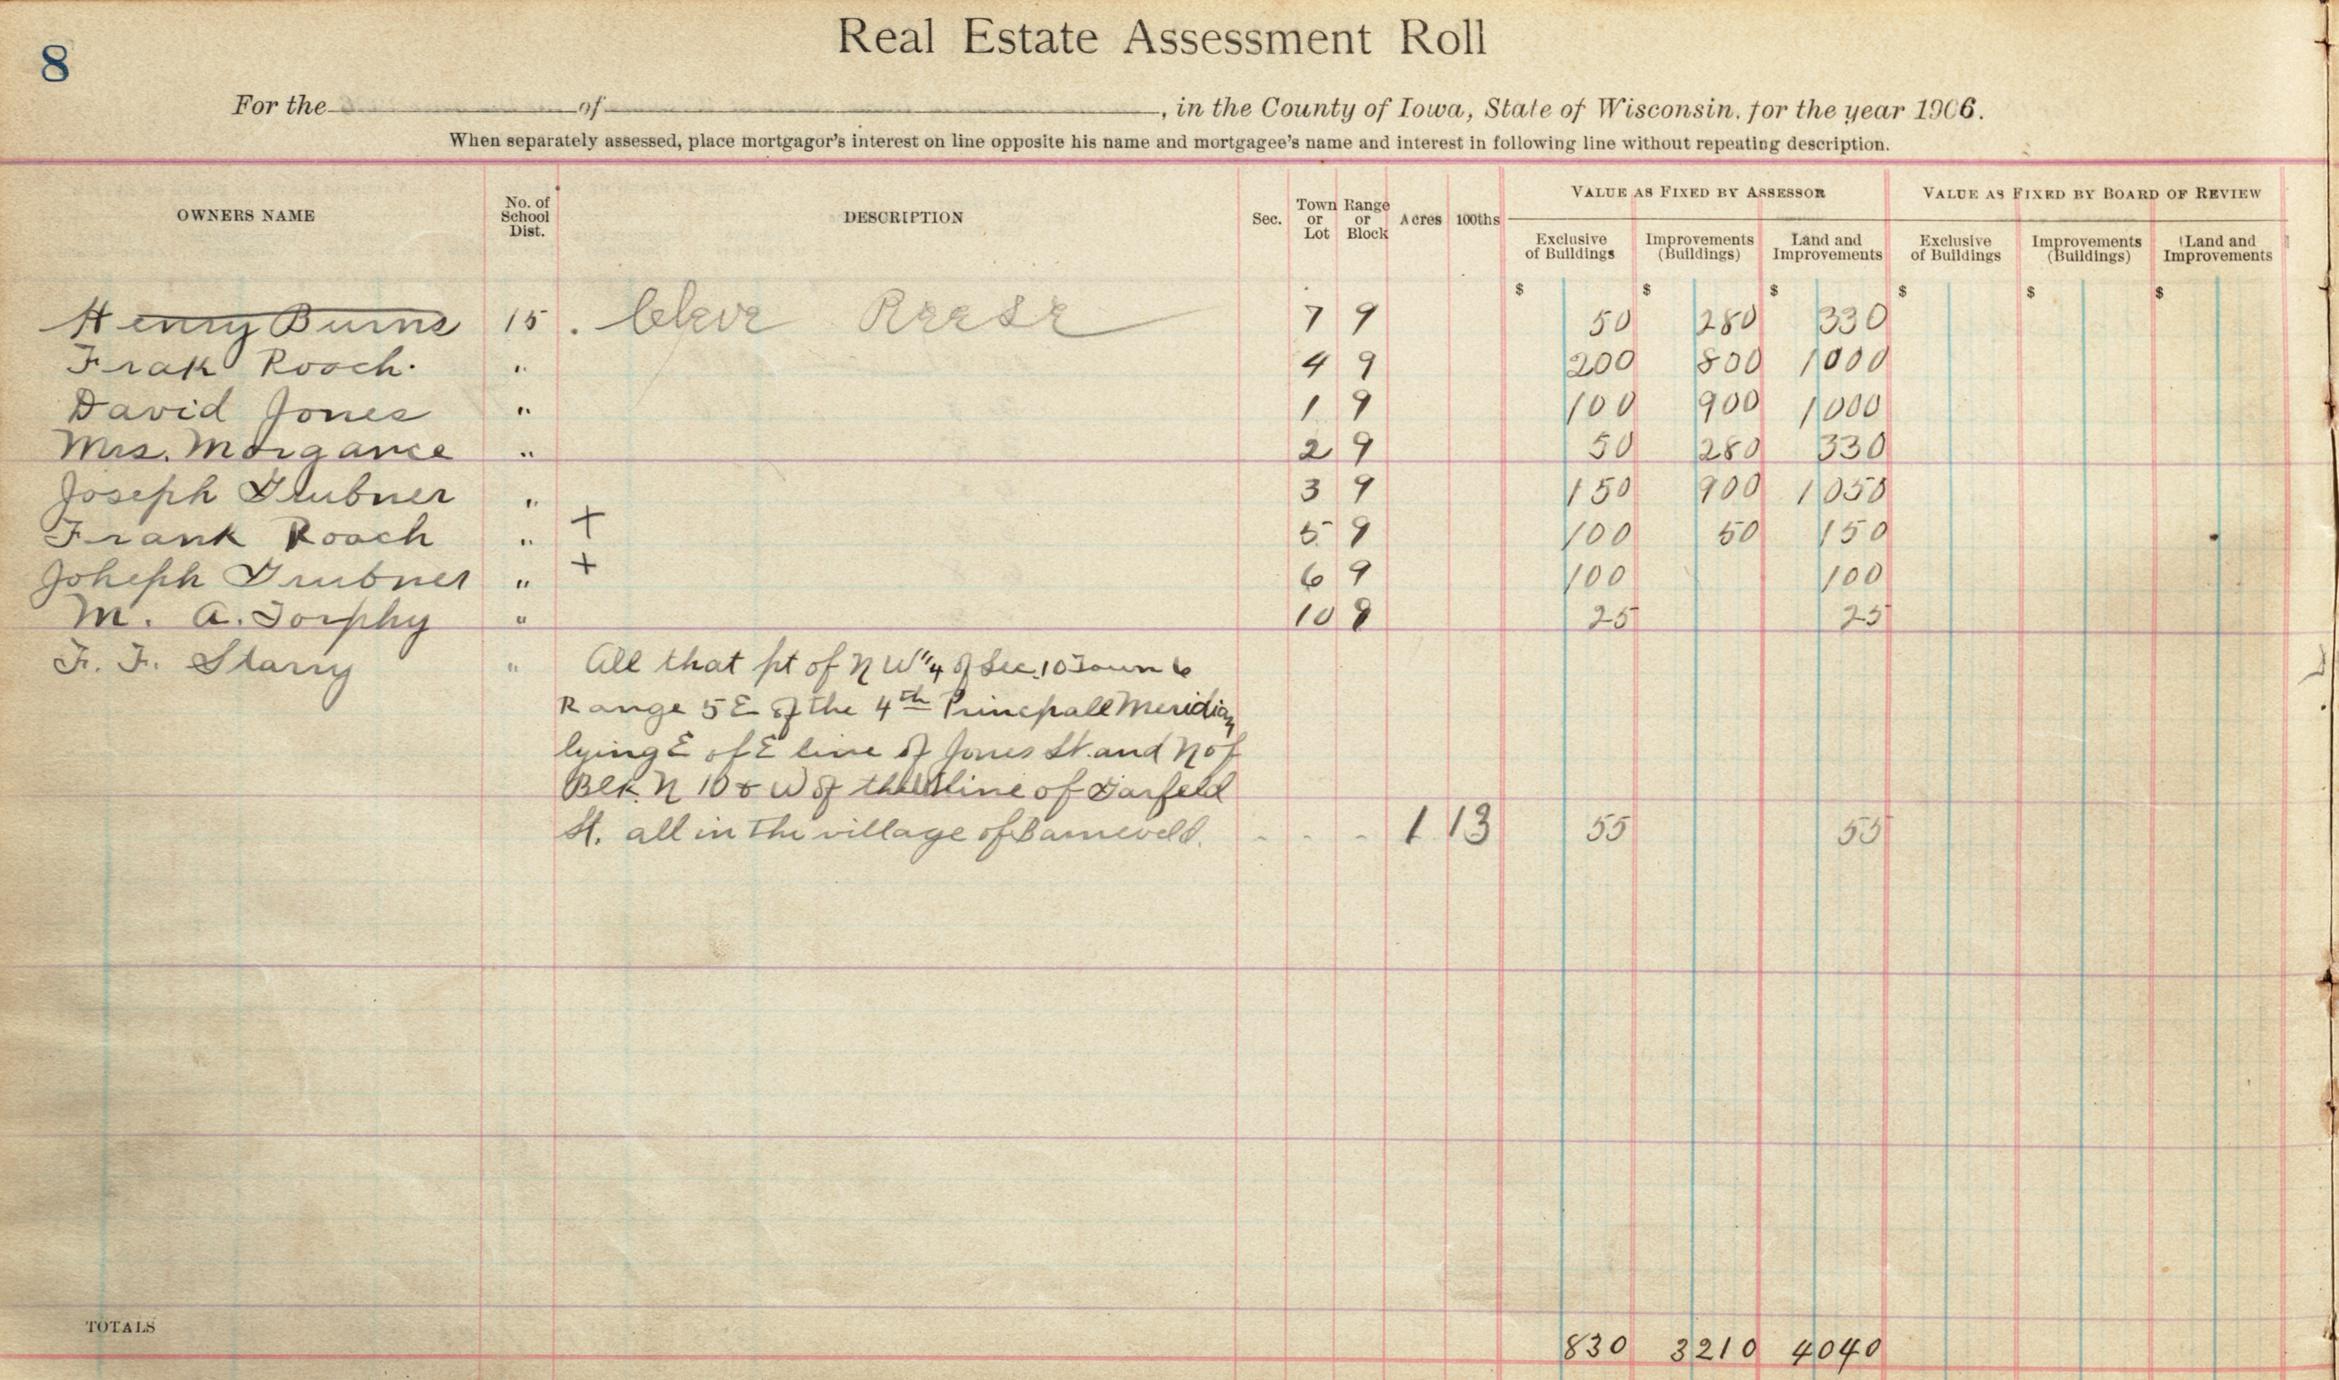 8
Real Estate Assessment Roll
For the of , in the County of Iowa, State of Wisconsin, for the year 1906.
When separately assessed, place mortgagor's interest on line opposite his name and mortgagee's name and interest in following line without repeating description.
OWNERS NAME No. of School Dist. DESCRIPTION Sec. Town or Lot Range or Block Acres 100ths VALUE AS FIXED BY ASSESSOR VALUE AS FIXED BY BOARD OF REVIEW
Exclusive of Buildings Improvements (Buildings) Land and Improvements Exclusive of Buildings Improvements (Buildings) Land and Improvements
$ $ $ $ $ $
Henry Burns 15 . Cleve Reese 7 9 50 280 330
Frak Roach. " 4 9 200 800 1000
David Jones " 1 9 100 900 1000
Mrs. Morgance " 2 9 50 280 330
Joseph Grubner " 3 9 150 900 1050
Frank Roach " + 5 9 100 50 150
Joheph Grubner " + 6 9 100 100
M. A. Torphy " 10 9 25 25
F. F. Starry " All that pt of N W 1/4 of Sec. 10 Town 6
Range 5 E of the 4th Principall Meridian
lying E of E line of Jones St. and N of
Blk. N 10 & W of the W line of Garfeld
St. all in the village of Barneveld. - - - 1 13 55 55
TOTALS 830 3210 4040